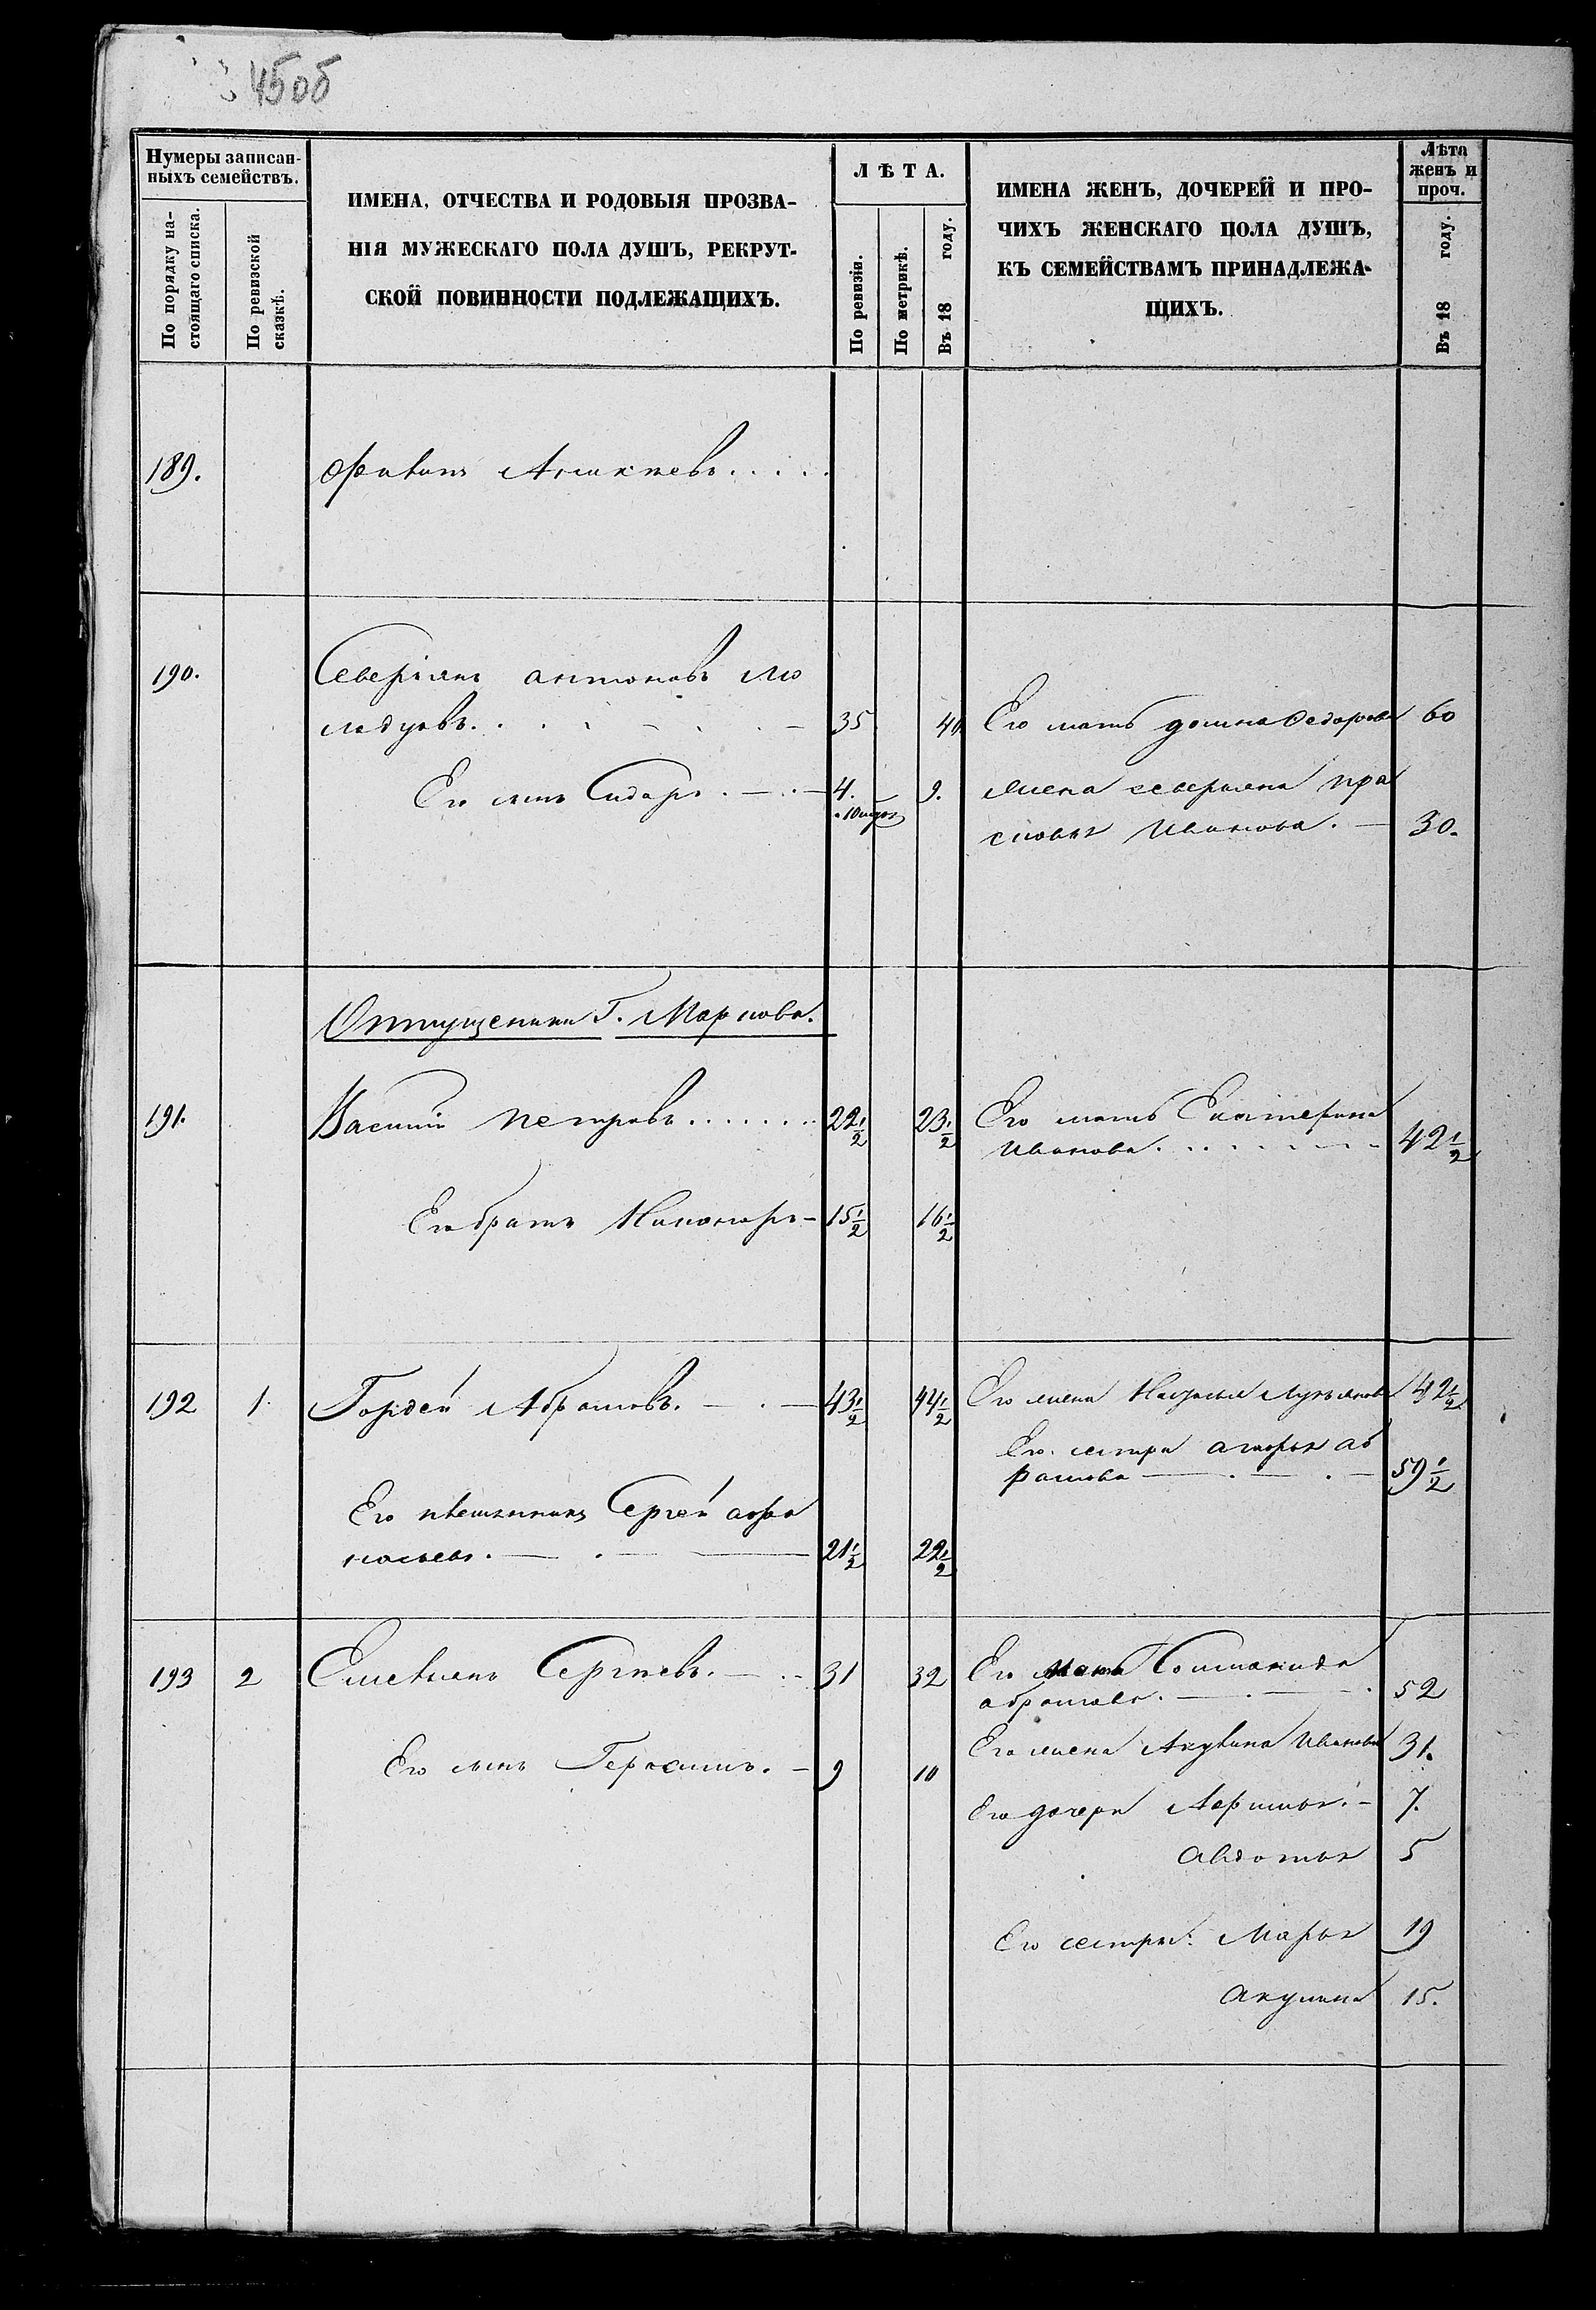 45об
Нумеры записан-
ныхъ семействъ.
По порядку на-
стоящаго списка.
По ревизской
сказкѣ.
ИМЕНА, ОТЧЕСТВА И РОДОВЫЯ ПРОЗВА-
НІЯ МУЖЕСКАГО ПОЛА ДУШЪ, РЕКРУТ-
СКОЙ ПОВИННОСТИ ПОДЛЕЖАЩИХЪ.
ЛѢТА.
По ревизіи.
По метрикѣ.
Въ 18 году.
ИМЕНА ЖЕНЪ, ДОЧЕРЕЙ И ПРО-
ЧИХЪ ЖЕНСКАГО ПОЛА ДУШЪ,
КЪ СЕМЕЙСТВАМЪ ПРИНАДЛЕЖА-
ЩИХЪ.
Лѣта
женъ и
проч.
Въ 18 году.
189.
190. Северьянъ антоновъ
35 40 Его мать домна Федорова 60
Его сынъ Сидоръ. 4. 9. жена северьяна пра
сковья Иванова. 30.
Отпущеники Г. Маркова.
191. Василій петровъ 22 1/2 23 1/2 Его мать Екатерина
Иванова 42 1/2
Его братъ Никоноръ 15 1/2 16 1/2
192 1. Гордей Абрамовъ. 43 1/2 44 1/2 Его жена Наталья Лукьянова 42 1/2
Его сестра аб
рамова 59 1/2
Его племянникъ Сергей афа
насьевъ. 21 1/2 22 1/2
193 2 Емельянъ Сергѣевъ. 31 32 Его мать Соломонида
абрамова. 52
Его сынъ Герасимъ. 9 10 Его жена Акулина Иванова 31.
Его дочери 7.
авдотья 5
Его сестры: Марья 19
акулина 15.